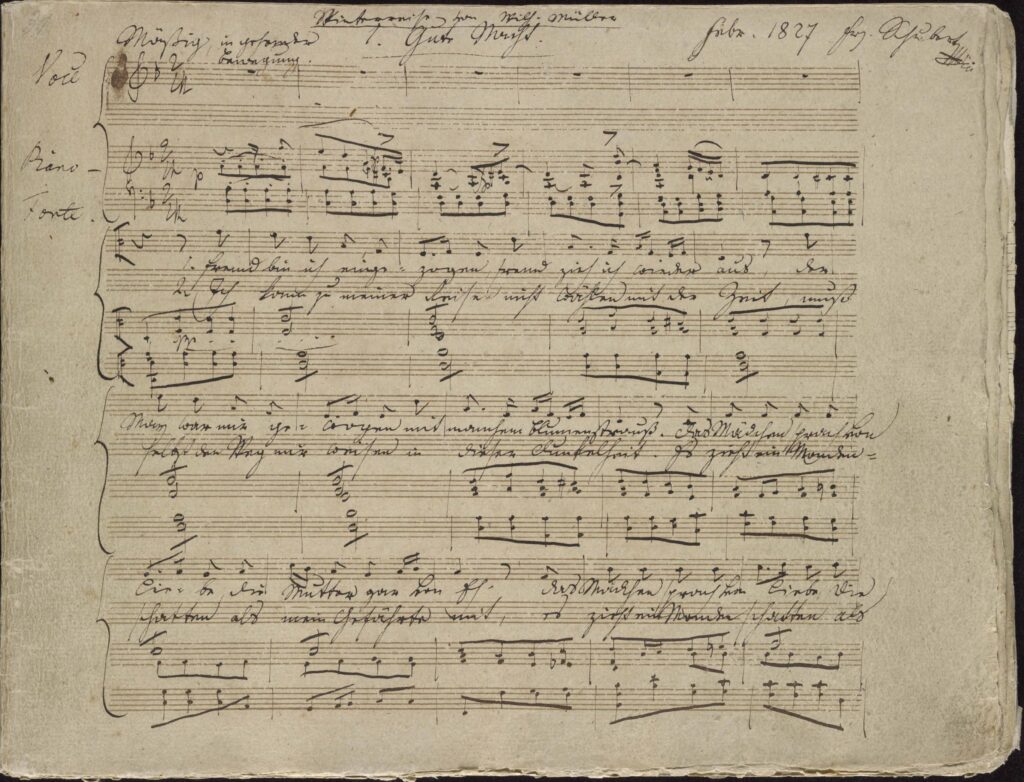 Winterreise von Wilh. Müller
Mäßig, in gehender 1. Gute Nacht. Febr. 1827 Frz. Schubert
Bewegung.
Voce
Piano-
Forte.
1. Fremd bin ich einge-zogen fremd zieh ich wieder aus, der
2. Ich kann zu meiner Reise nicht wählen mit der Zeit, muß
May war mir ge-wogen mit manchem Blumenstrauß. Das Mädchen sprach von
selbst den Weg mir weisen in dieser Dunkelheit. Es zieht ein Monden=
Lie-be die Mutter gar von Eh, das Mädchen sprach von Liebe die
schatten als mein Gefährte mit, es zieht ein Mondenschatten als